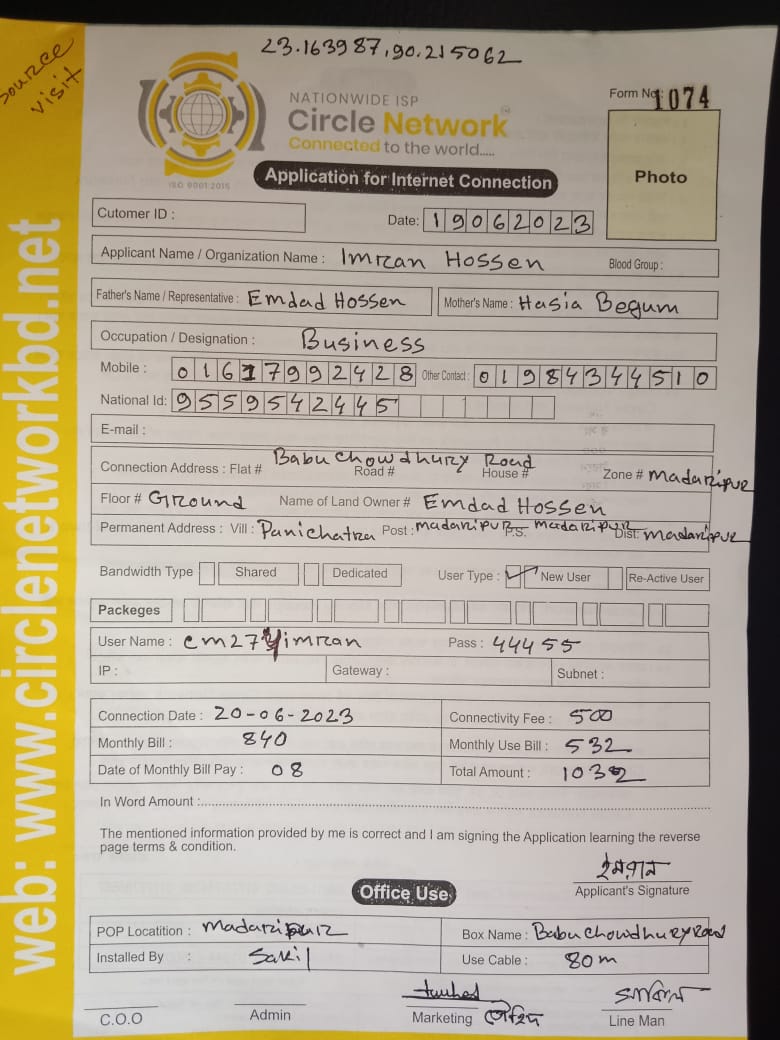 23.163987,90.215062
source visit
Form No: 1074
NATIONWIDE ISP
Circle Network
Connected to the world.....
ISO 9001:2015
Application for Internet Connection
Photo
Cutomer ID :
Date: 19062023
Applicant Name / Organization Name : Imran Hossen Blood Group :
Father's Name / Representative : Emdad Hossen Mother's Name : Hasia Begum
Occupation / Designation : Business
Mobile : 01617992428 Other Contact : 01984344510
National Id: 9559542445
E-mail :
Connection Address : Flat # Babu Chowdhury Road Road # House # Zone # Madaripur
Floor # Ground Name of Land Owner # Emdad Hossen
Permanent Address : Vill : Panichatra Post : Madaripur P.S. Madaripur Dist: Madaripur
Bandwidth Type Shared Dedicated User Type : ✓ New User Re-Active User
Packeges
User Name : Pass : 44455
IP : Gateway : Subnet :
Connection Date : 20-06-2023 Connectivity Fee : 500
Monthly Bill : 840 Monthly Use Bill : 532
Date of Monthly Bill Pay : 08 Total Amount : 1032
In Word Amount :
The mentioned information provided by me is correct and I am signing the Application learning the reverse
page terms & condition.
ইমরান
Applicant's Signature
Office Use
POP Locatition : Madaripur Box Name : Babu Chowdhury Road
Installed By : Sakil Use Cable : 80m
C.O.O Admin Marketing তৌহিদ Line Man
web: www.circlenetworkbd.net